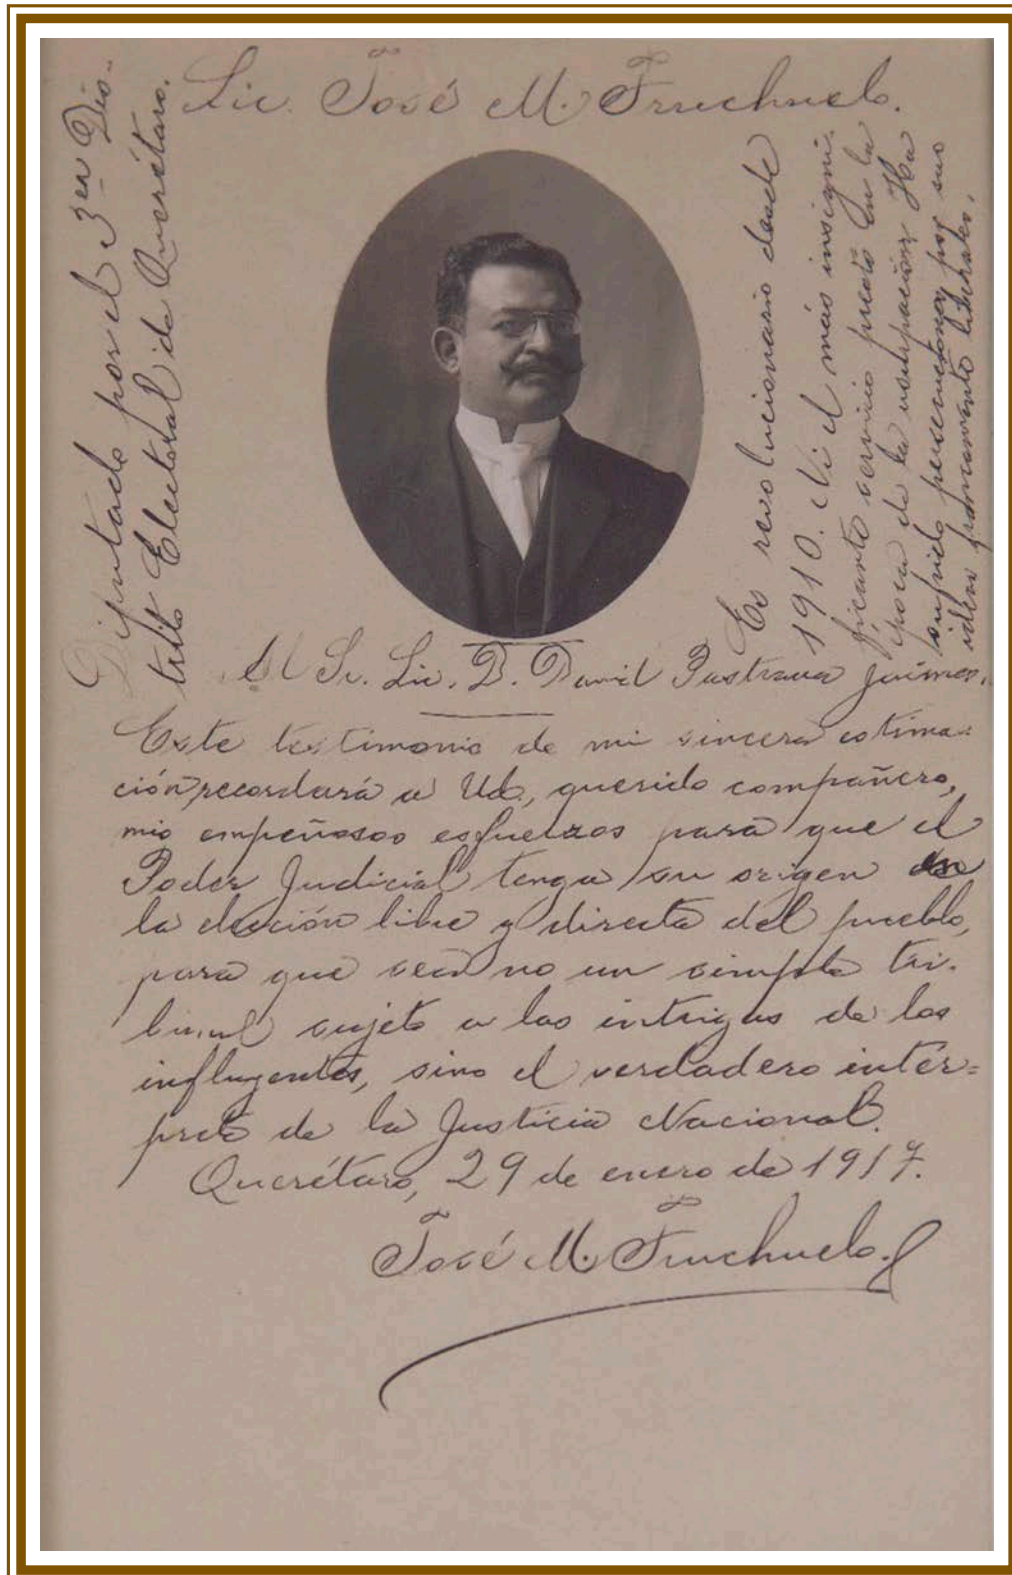 Lic. José M. Truchuelo.
Diputado por el 3er Dis-
trito Electoral de Querétaro.
Es revolucionario desde
1910. Ni el más insigni-
ficante servicio prestó en la
época de la usurpación. Ha
sufrido persecuciones por sus
ideas francamente liberales.
Al Sr. Lic. D. David Pastrana Jaimes.
Este testimonio de mi sincera estima-
ción, recordará a Ud., querido compañero,
mis empeñosos esfuerzos para que el
Poder Judicial tenga su origen en
la elección libre y directa del pueblo,
para que sea no un simple tri-
bunal sujeto a las intrigas de los
influyentes, sino el verdadero intér=
prete de la Justicia Nacional.
Querétaro, 29 de enero de 1917.
José M. Truchuelo.